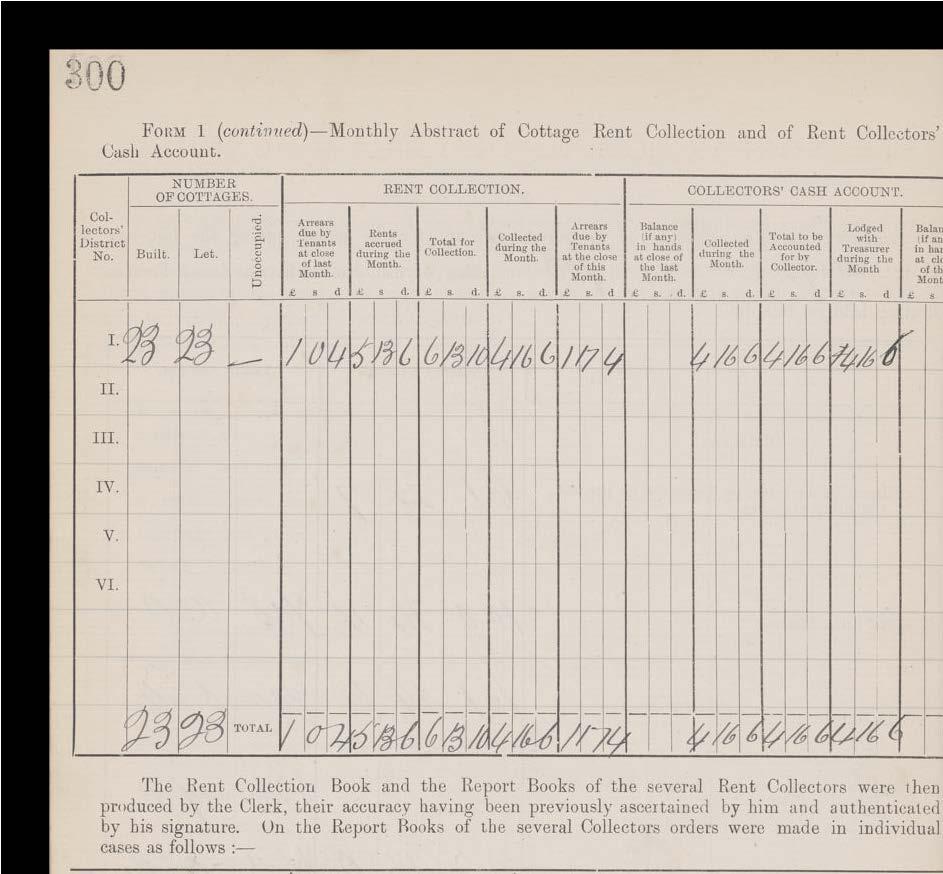 300
FORM 1 (continued)—Monthly Abstract of Cottage Rent Collection and of Rent Collectors'
Cash Account.
Collectors' District No.
NUMBER OF COTTAGES.
RENT COLLECTION.
COLLECTORS' CASH ACCOUNT.
Built.
Let.
Unoccupied.
Arrears due by Tenants at close of last Month.
Rents accrued during the Month.
Total for Collection.
Collected during the Month.
Arrears due by Tenants at the close of this Month.
Balance (if any) in hands at close of the last Month.
Collected during the Month.
Total to be Accounted for by Collector.
Lodged with Treasurer during the Month
£ s d £ s d. £ s. d. £ s. d. £ s. d £ s. d. £ s. d £ s. d £ s. d £ s
I. 23 23 — 1 0 4 5 13 6 6 13 10 4 16 6 1 17 4 4 16 6 4 16 6 4 16 6
II.
III.
IV.
V.
VI.
23 23 TOTAL 1 0 4 5 13 6 6 13 10 4 16 6 1 17 4 4 16 6 4 16 6 4 16 6
The Rent Collection Book and the Report Books of the several Rent Collectors were then
produced by the Clerk, their accuracy having been previously ascertained by him and authenticated
by his signature. On the Report Books of the several Collectors orders were made in individual
cases as follows :—